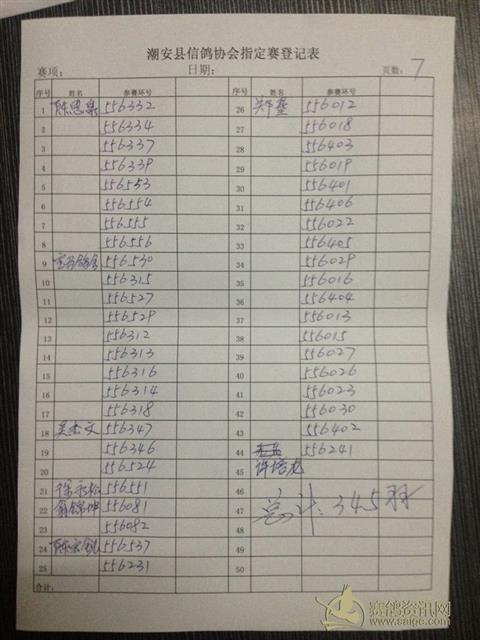 潮安县信鸽协会指定赛登记表
赛项： 日期： 页数：7
序号 姓名 参赛环号 序号 姓名 参赛环号
1 陈思泉 556332 26 郑奎 556012
2 556334 27 556018
3 556337 28 556403
4 556339 29 556019
5 556553 30 556401
6 556554 31 556406
7 556555 32 556022
8 556556 33 556405
9 556530 34 556029
10 556315 35 556016
11 556527 36 556404
12 556529 37 556013
13 556312 38 556015
14 556313 39 556027
15 556316 40 556026
16 556314 41 556023
17 556318 42 556030
18 吴杰文 556347 43 556402
19 556346 44 556241
20 556524 45 许培龙
21 徐永松 556551 46
22 翁锦坤 556081 47 总计：345羽
23 556082 48
24 陈宏 556537 49
25 556231 50
合计：
赛鸽资讯网
www.saige.com